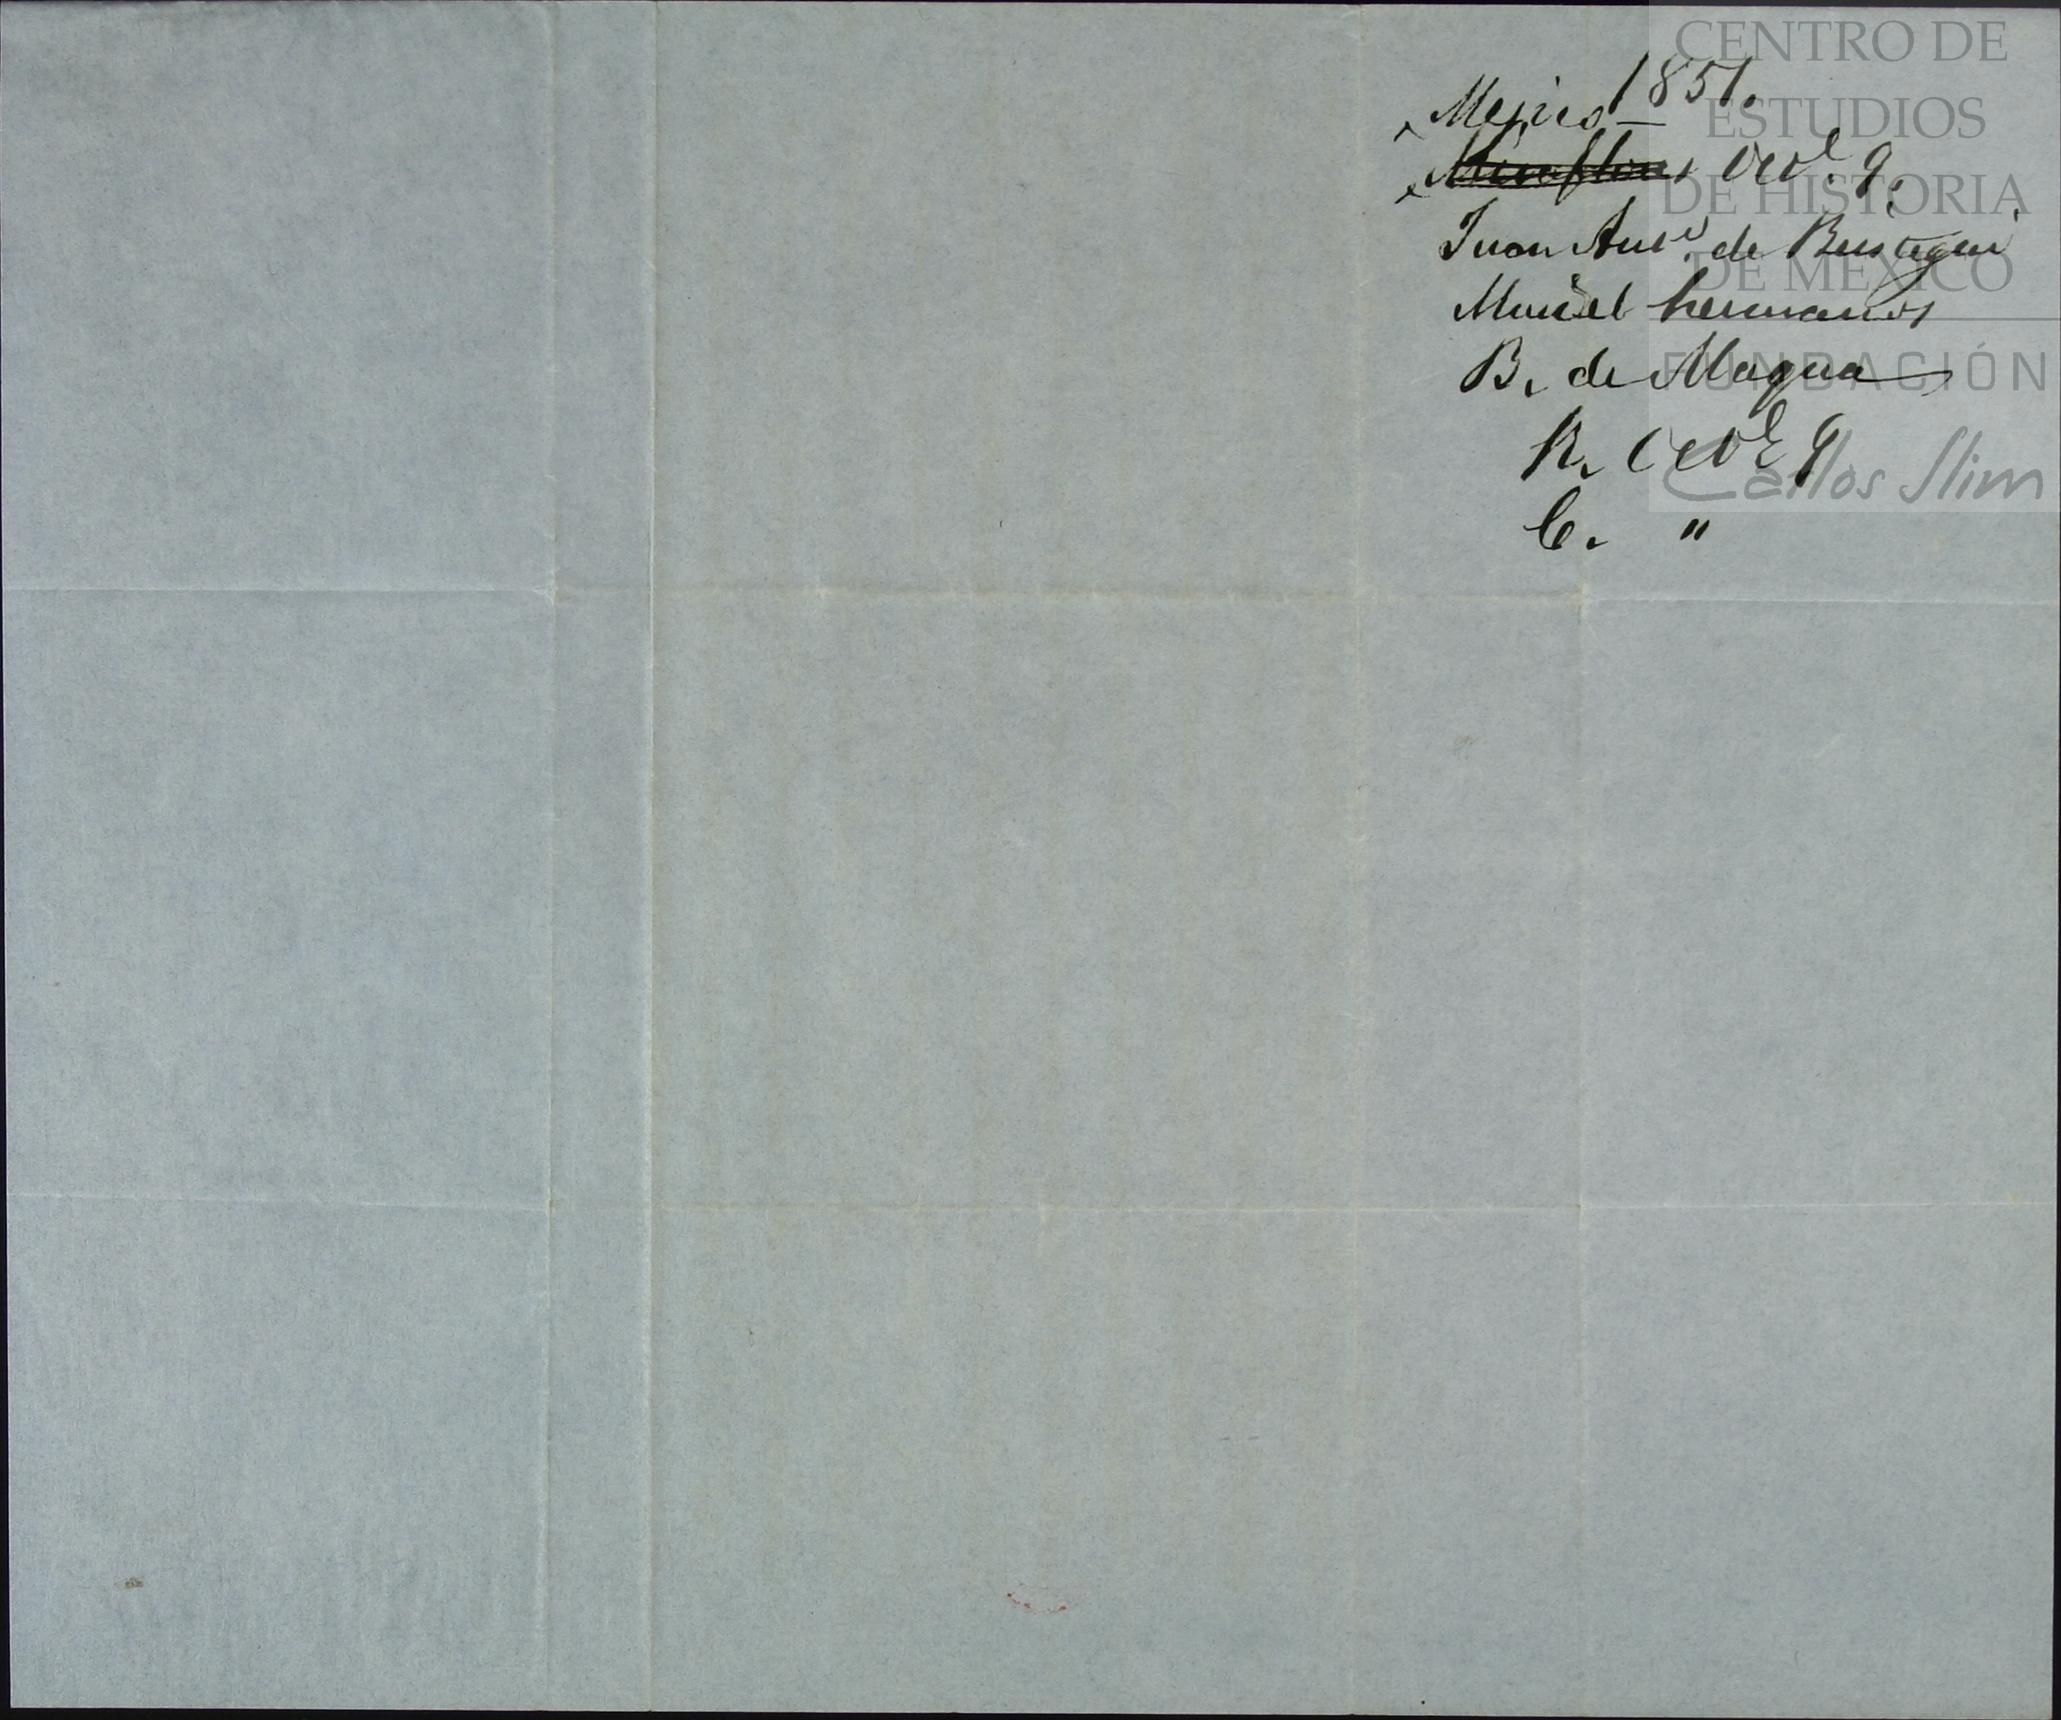 1851.
Mejico
Miraflores Oct.e 9.
Juan Ant.o de Beistegui
Muriel hermanos
B. de Maqua
R. Oct.e 9
C. "
CENTRO DE
ESTUDIOS
DE HISTORIA
DE MÉXICO
FUNDACIÓN
Carlos Slim